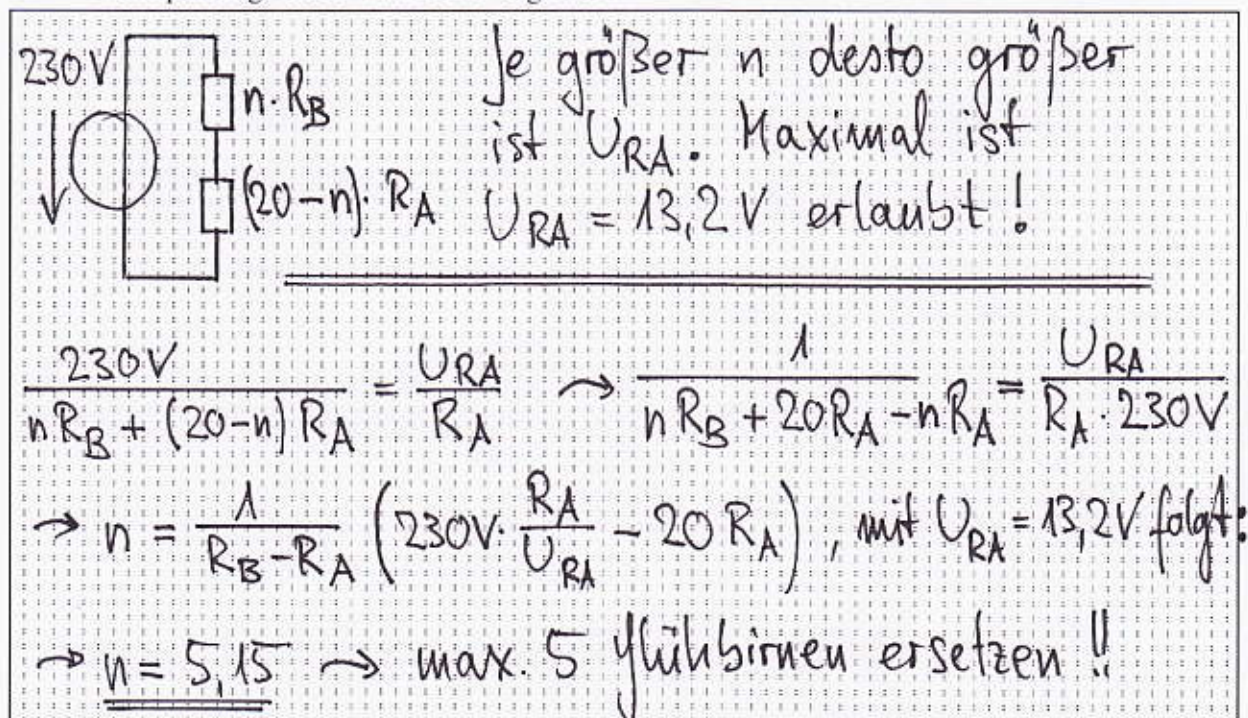 230V
n·R_B
(20-n)·R_A
Je größer n desto größer
ist U_RA. Maximal ist
U_RA = 13,2V erlaubt!
230V / (nR_B + (20-n)R_A) = U_RA / R_A → 1 / (nR_B + 20R_A - nR_A) = U_RA / (R_A · 230V)
→ n = 1 / (R_B - R_A) (230V · R_A / U_RA - 20 R_A), mit U_RA = 13,2V folgt:
→ n = 5,15 → max. 5 Glühbirnen ersetzen!!